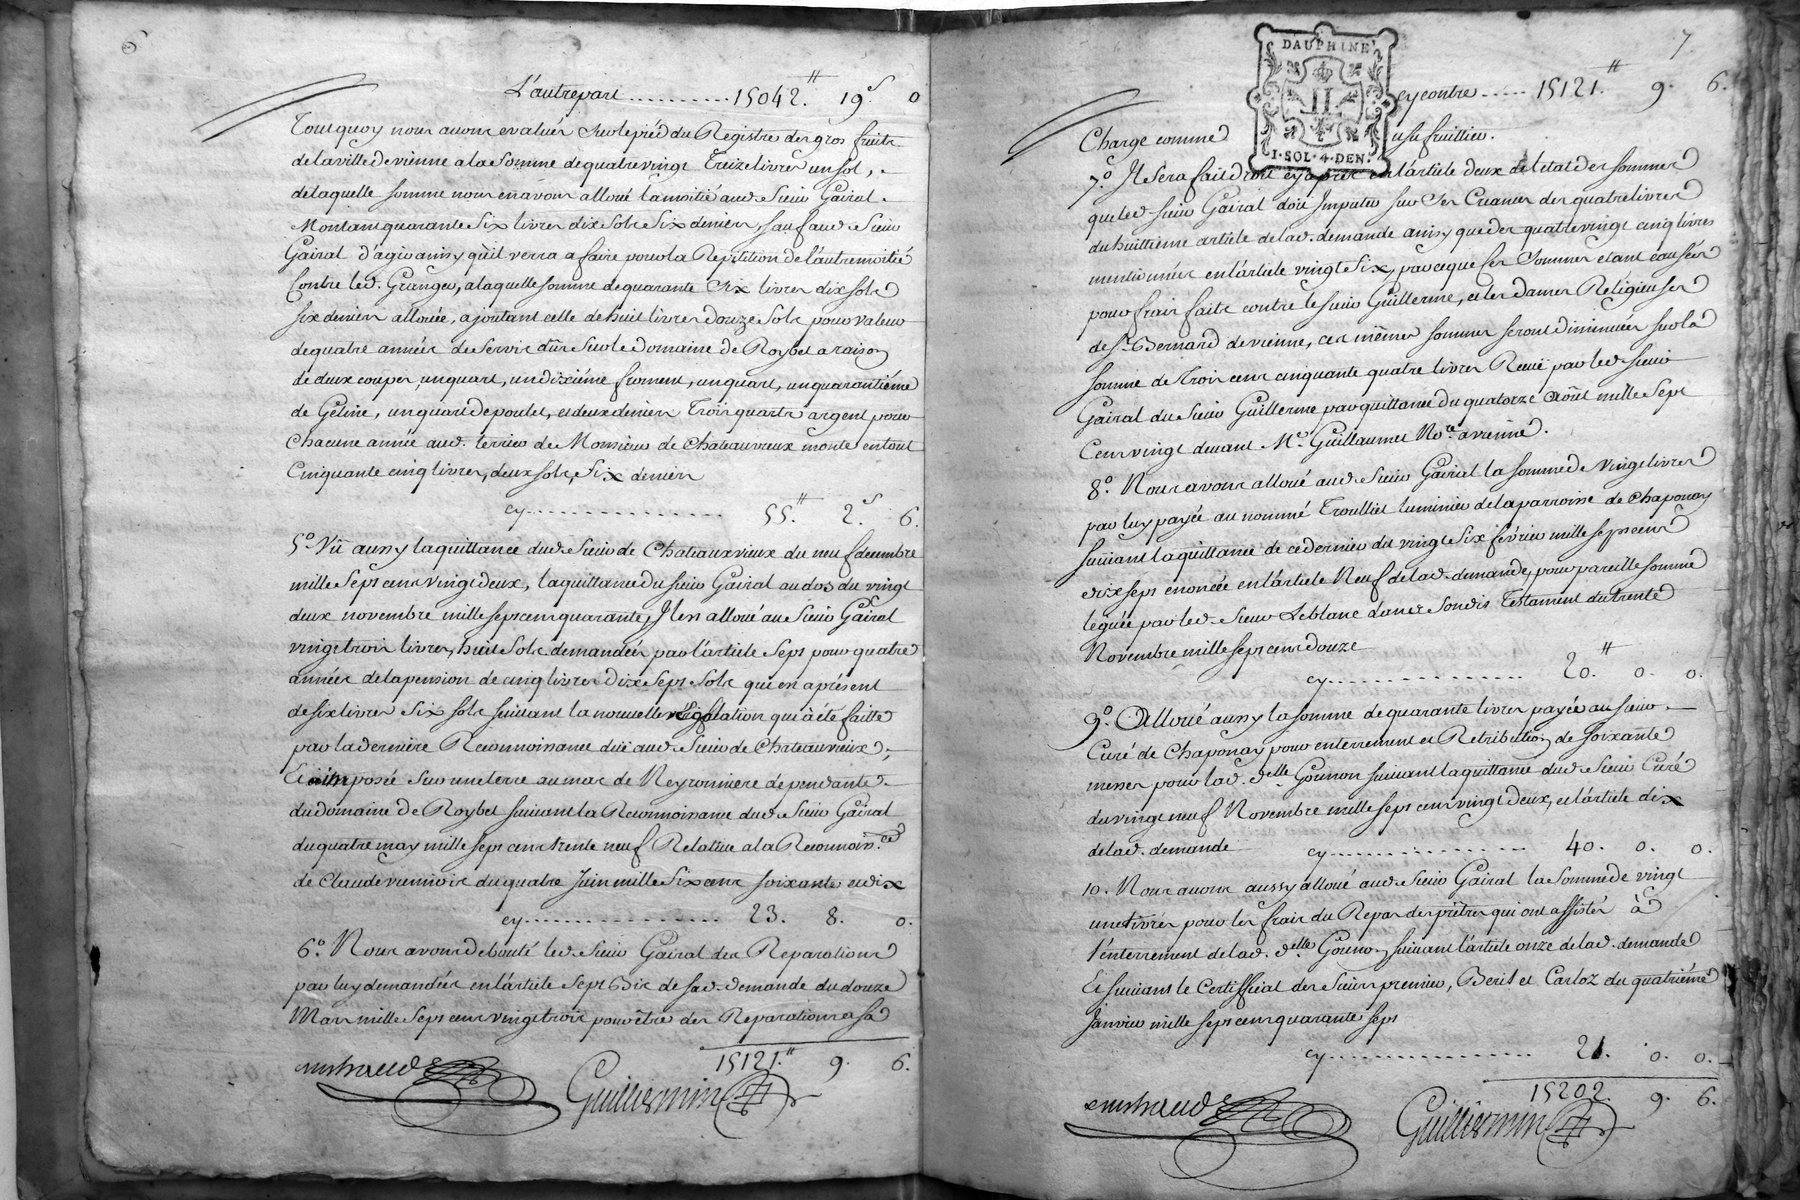 6
L'autrepart ........... 15042.# 19.s 0
Tout quoy nous avons evalués sur le pied du Registre des gros fruits
de la ville de vienne a la somme de quatre vingt Treize livres un sol,
de laquelle somme nous en avons alloué la moitié aud. Sieur Gairal
Montant quarante Six livres dix Sols Six deniers, sauf aud. Sieur
Gairal d'agir ainsy qu'il verra a faire pour la Repetition de l'autre moitié
Contre led. Granger, a laquelle somme de quarante Six livres dix sols
six deniers allouée, ajoutant celle de huit livres douze Sols pour valeur
de quatre années de Servis dûs Sur le Domaine de Roybet a raison
de deux coupes, un quart, un dixiéme froment, un quart, un quarantiéme
de Geline, un quart de poulet, et deux deniers Trois quarts argent pour
Chacune année aud. terrier de Monsieur de Chateauvieux monte en tout
Cinquante cinq livres, deux sols, Six deniers
cy .................. 55.# 2.s 6.
5.o Vû aussy la quittance dud. Sieur de Chateauxvieux du neuf decembre
mille Sept cent vingt deux, la quittance du sieur Gairal au dos du vingt
deux novembre mille sept cent quarante, Il est alloué au Sieur Gairal
vingt trois livres, huit Sols demandées par l'article Sept pour quatre
années de la pension de cinq livres Dix Sept Sols qui est a présent
de six livres Six sols suivant la nouvelle
par la derniére Reconnoissance duë aud. Sieur de Chateauvieux,
Et imposé Sur une terre au mas de Neyronniere dépendante
du domaine de Roybet suivant la Reconnoissance dud. Sieur Gairal
du quatre may mille sept cent trente neuf Relative a la Reconnoiss.ce
de Claude du quatre Juin mille Six cent soixante et dix
cy .................. 23. 8. 0.
6.o Nous avons debouté led. Sieur Gairal des Reparations
par luy demandées en l'article Sept Bis de sad. demande du douze
Mars mille Sept cent vingt trois pour être des Reparations a sa
15121.# 9. 6.
Guillermin
7
DAUPHINÉ
1·SOL·4·DEN.
cy contre ..... 15121.# 9. 6.
Charge comme usufruitier.
7.o Il Sera fait droit cy aprés en l'article deux de l'etat des sommes
que led. sieur Gairal doit Imputer sur Ses Creances des quatre livres
du huittiéme article de lad. demande ainsy que des quatre vingt cinq livres
mentionnées en l'article vingt Six, parce que ses Sommes etant causées
pour frais faits contre le sieur Guillerme, et les Dames Réligieuses
de St. Bernard de vienne, ces mêmes sommes seront diminuées sur la
somme de Trois cent cinquante quatre livres Reçuë par led. sieur
Gairal du Sieur Guillerme par quittance du quatorze Août mille Sept
Cent vingt devant M.e Guillaumet No.re a vienne.
8.o Nous avons alloué aud. Sieur Gairal la somme de vingt livres
par luy payée au nommé Troulliet luminier de la parroisse de Chaponay
suivant la quittance de ce dernier du vingt Six février mille sept cent
dix sept enoncée en l'article Neuf de lad. demande, pour pareille somme
leguée par led. Sieur Leblanc dans Sondis Testament du trente
Novembre mille sept cent douze
cy .................. 20.# 0. 0.
9.o Alloué aussy la somme de quarante livres payée au sieur
Curé de Chaponay pour enterrement et Retribution de soixante
messes pour lad. d.elle Gounon suivant la quittance dud. Sieur Curé
du vingt neuf Novembre mille sept cent vingt deux, et l'article dix
de lad. demande cy .................. 40. 0. 0.
10. Nous avons aussy alloué aud. Sieur Gairal la Somme de vingt
une livres pour les frais du Repas des prêtres qui ont assisté à
l'enterrement de lad. d.elle Gounon, suivant l'article onze de lad. demande
Et suivant le Certifficat des Sieurs premier, Berit et Carloz du quatriéme
Janvier mille sept cent quarante sept
cy .................. 21. 0. 0.
15202. 9. 6.
Guillermin